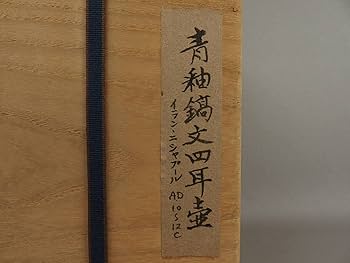 青釉鎬文四耳壺
イラン・ニシャプール AD 10~12C